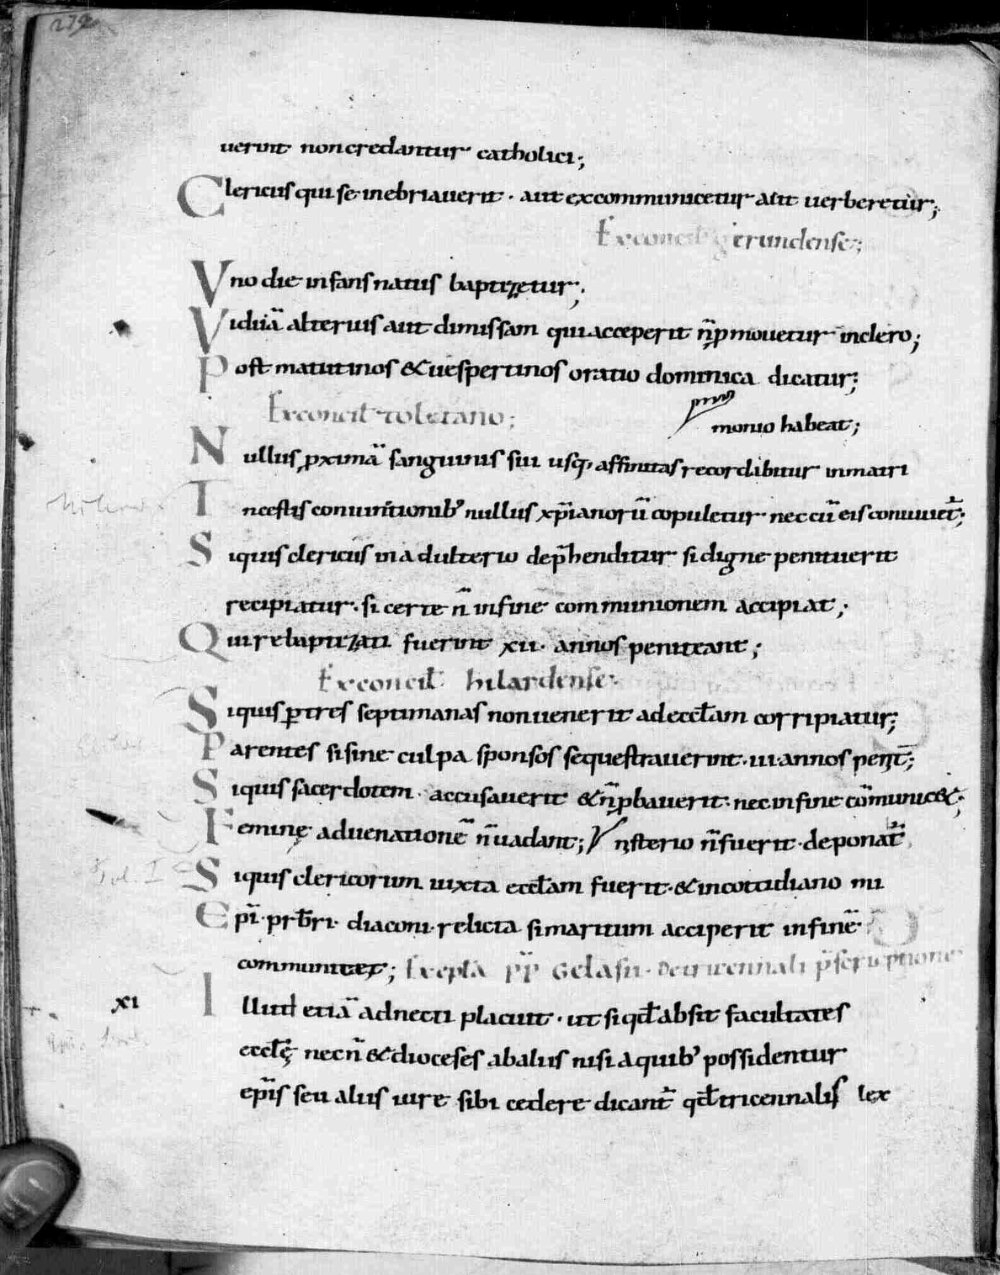 279
uerint non credantur catholici;
Clericus qui se inebriauerit · aut excommunicetur aut uerberetur;
Ex concil gerundense;
Vno die infans natus baptizetur;
Viduā alterius aut dimissam qui acceperit n̄ p̄moueatur in clero;
Post matutinos & uespertinos oratio dominica dicatur;
Ex concil toletano;
monio habeat;
Nullus proximā sanguinis sui usq; affinitas recordibitur in matri
Incestis coniunctionib; nullus xp̄ianorū copuletur nec cū eis conuiuet̄;
Siquis clericus in adulterio dep̄henditur si digne penituerit
recipiatur · si certe n̄ in fine communionem accipiat;
Qui rebaptizati fuerint xii · annos peniteant;
Ex concil hilardense
Siquis p̄ tres septimanas non uenerit ad eccl̄am corripiatur;
Parentes si sine culpa sponsos sequestrauerint · iii annos penit̄;
Siquis sacerdotem · accusauerit & n̄ p̄bauerit · nec in fine cōmunic&;
Feminę ad uenationē n̄ uadant; nisterio n̄ fuerit · deponat̄
Siquis clericorum iuxta eccl̄am fuerit · & in cottidiano mi
Ep̄i · pr̄bri · diaconi · relicta si maritum acciperit in finē
communicet; Ex epl̄a pp̄ Gelasii · De tricennali p̄scriptione
xi Illud etiā adnecti placuit · ut si qd̄ absit facultates
eccl̄ę necn̄ & dioceses ab aliis nisi a quib; possidentur
ep̄is seu aliis iure sibi cedere dicant̄ qd̄ tricennalis lex